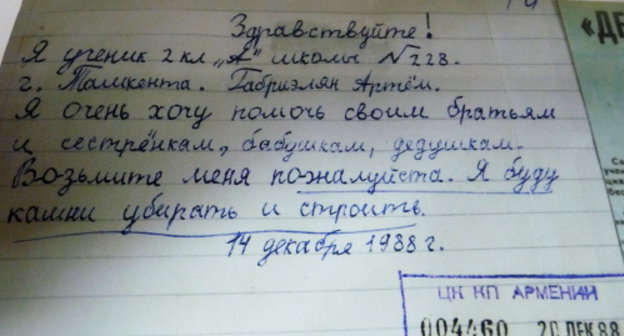 Здравствуйте!
Я ученик 2 кл „А" школы №228.
г. Ташкента. Габриэлян Артём.
Я очень хочу помочь своим братьям
и сестрёнкам, бабушкам, дедушкам.
Возьмите меня пожалуйста. Я буду
камни убирать и строить.
14 декабря 1988 г.
ЦК КП АРМЕНИИ
004460 20 ДЕК 88
«ДЕ